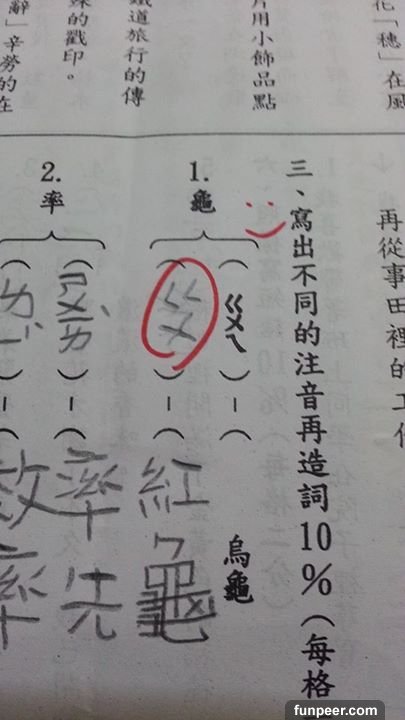 化「穗」在風
片用小飾品點
鐵道旅行的傳
殊的戳印。
辭」辛勞的在
再從事田裡的工作
三、寫出不同的注音再造詞10%(每格
1.龜
(ㄍㄨㄟ)-烏龜
(ㄍㄨ)-紅龜
2.率
(ㄕㄨㄞˋ)-率先
( )-效率
funpeer.com